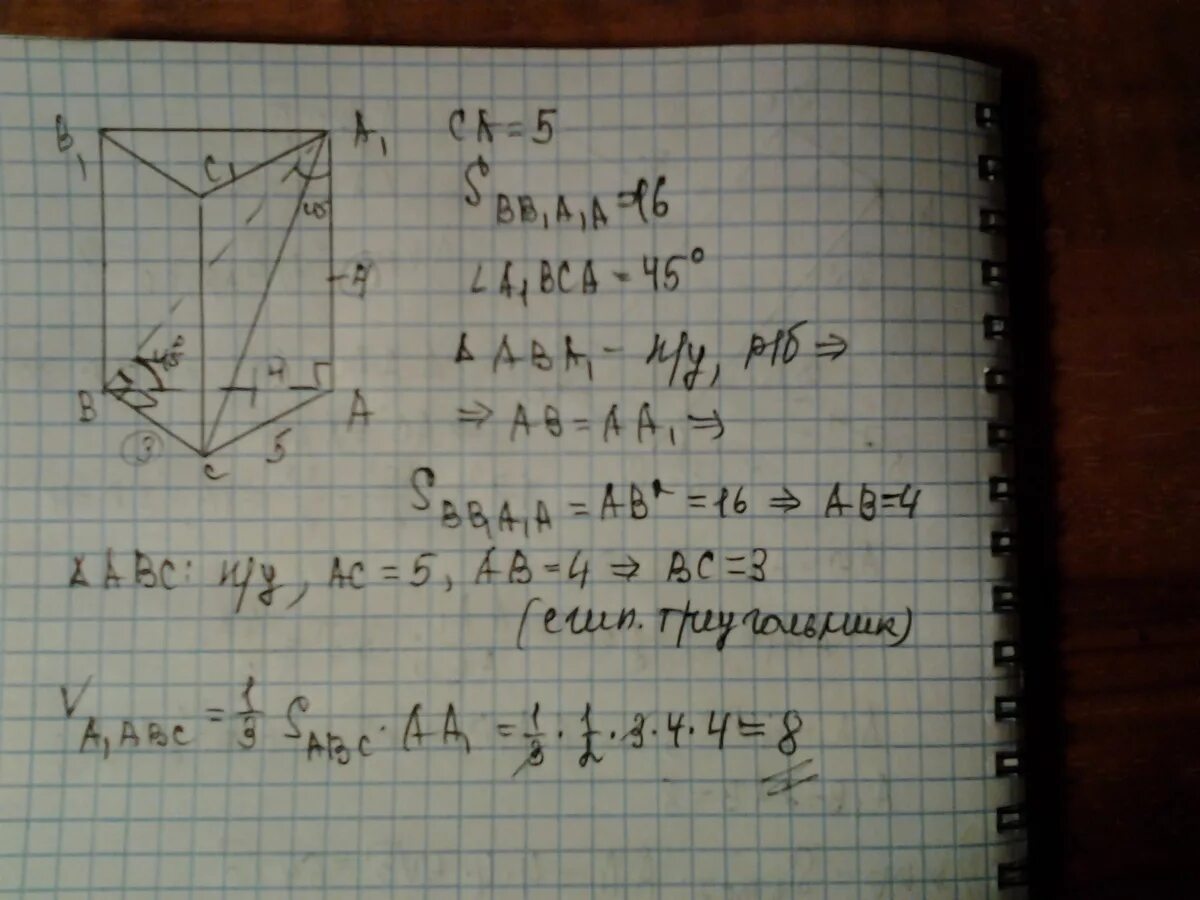 B₁ C₁ A₁
B C A
3 5
CA = 5
S BB₁A₁A = 16
∠A₁BCA = 45°
Δ ABA₁ - п/у, р/б ⇒
⇒ AB = AA₁ ⇒
S BB₁A₁A = AB² = 16 ⇒ AB = 4
Δ ABC: п/у, AC = 5, AB = 4 ⇒ BC = 3
(егип. треугольник)
V A₁ABC = 1/3 S ABC · AA₁ = 1/3 · 1/2 · 3 · 4 · 4 = 8